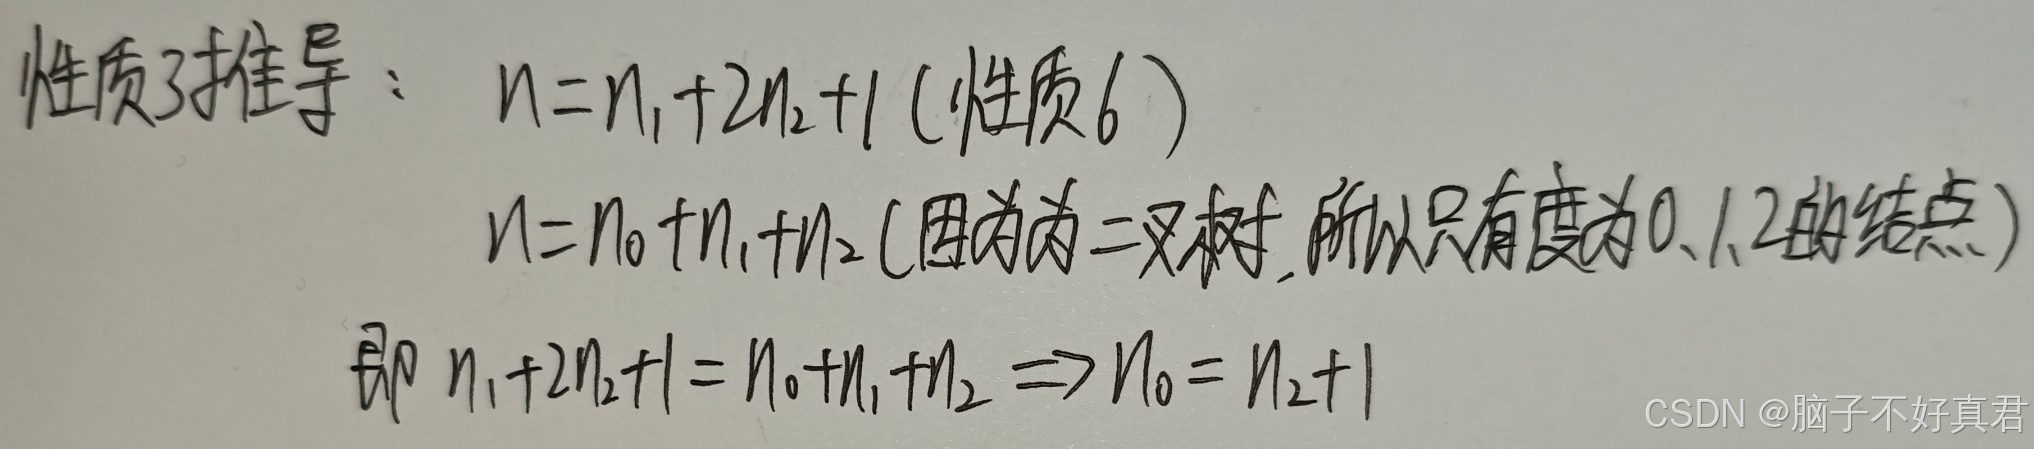 性质3推导： n=n₁+2n₂+1（性质6）
n=n₀+n₁+n₂（因为为二叉树,所以只有度为0、1、2的结点）
即 n₁+2n₂+1=n₀+n₁+n₂ => n₀=n₂+1
CSDN @脑子不好真君